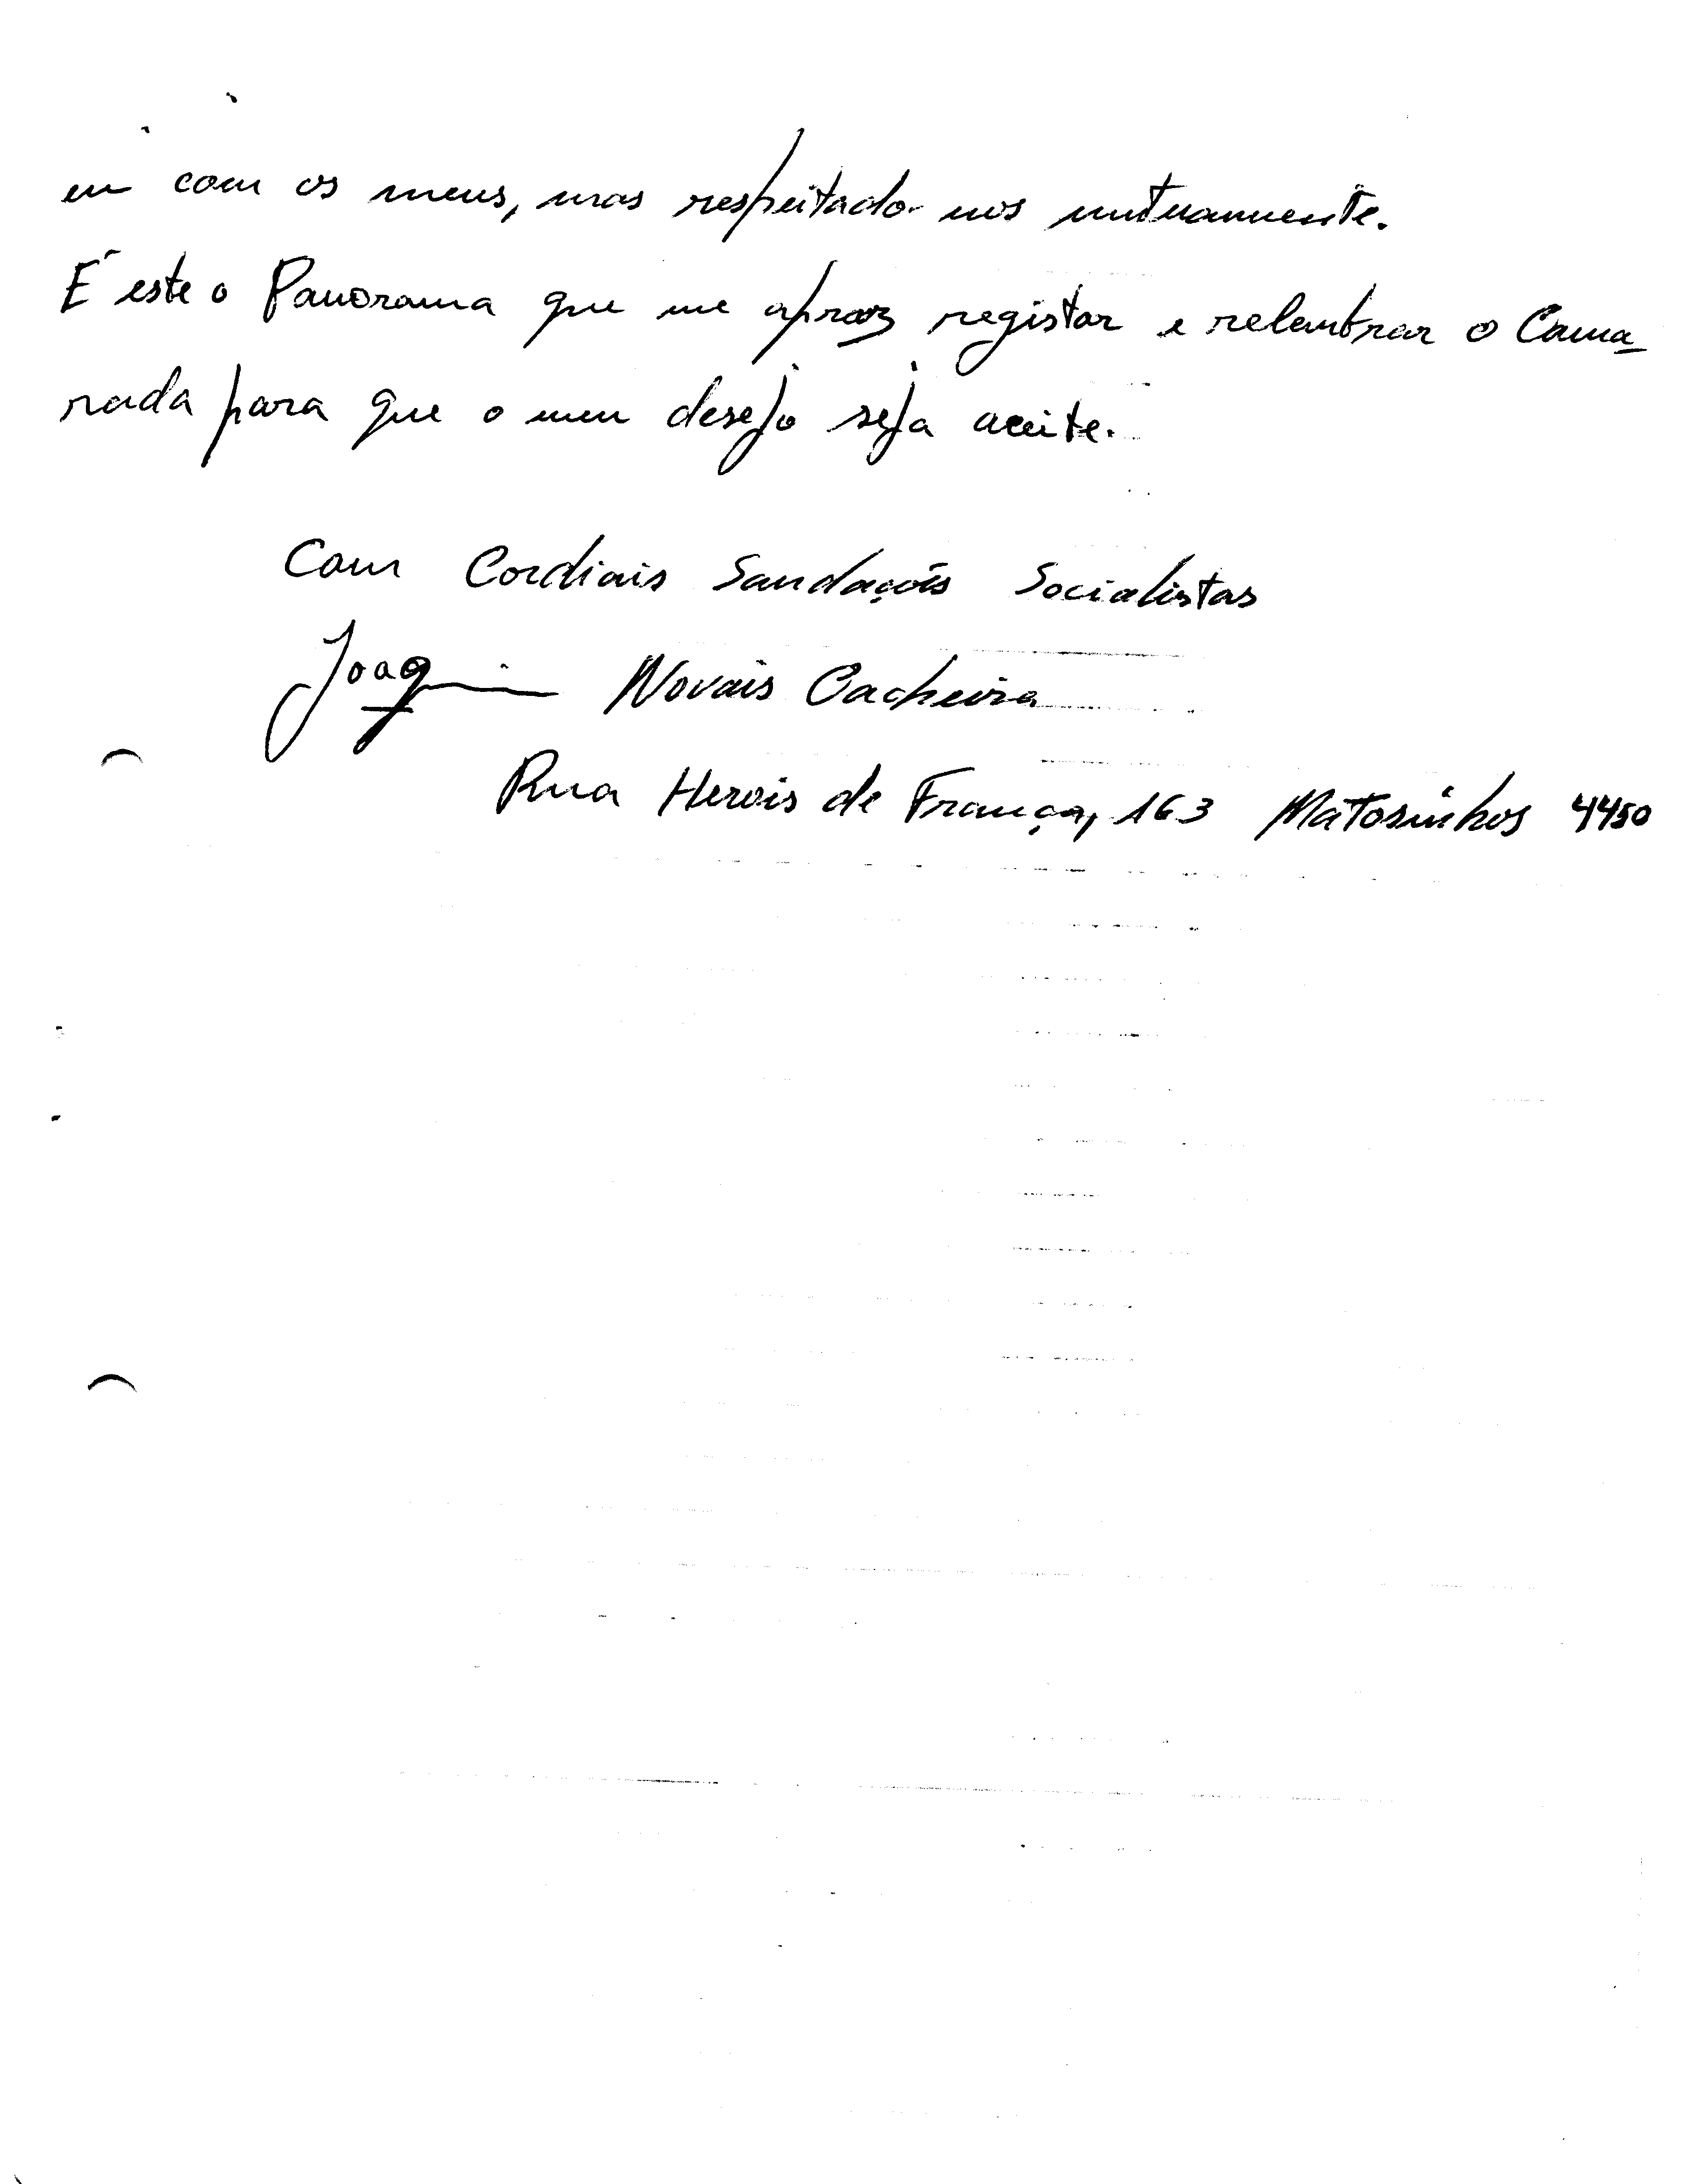 eu com os meus, mas respeitado-nos mutuamente.
É este o Panorama que me apraz registar e relembrar o Cama-
rada para que o meu desejo seja aceite.
Com Cordiais Saudações Socialistas
Joaquim Novais Cacheira
Rua Herois de França, 163 Matosinhos 4450